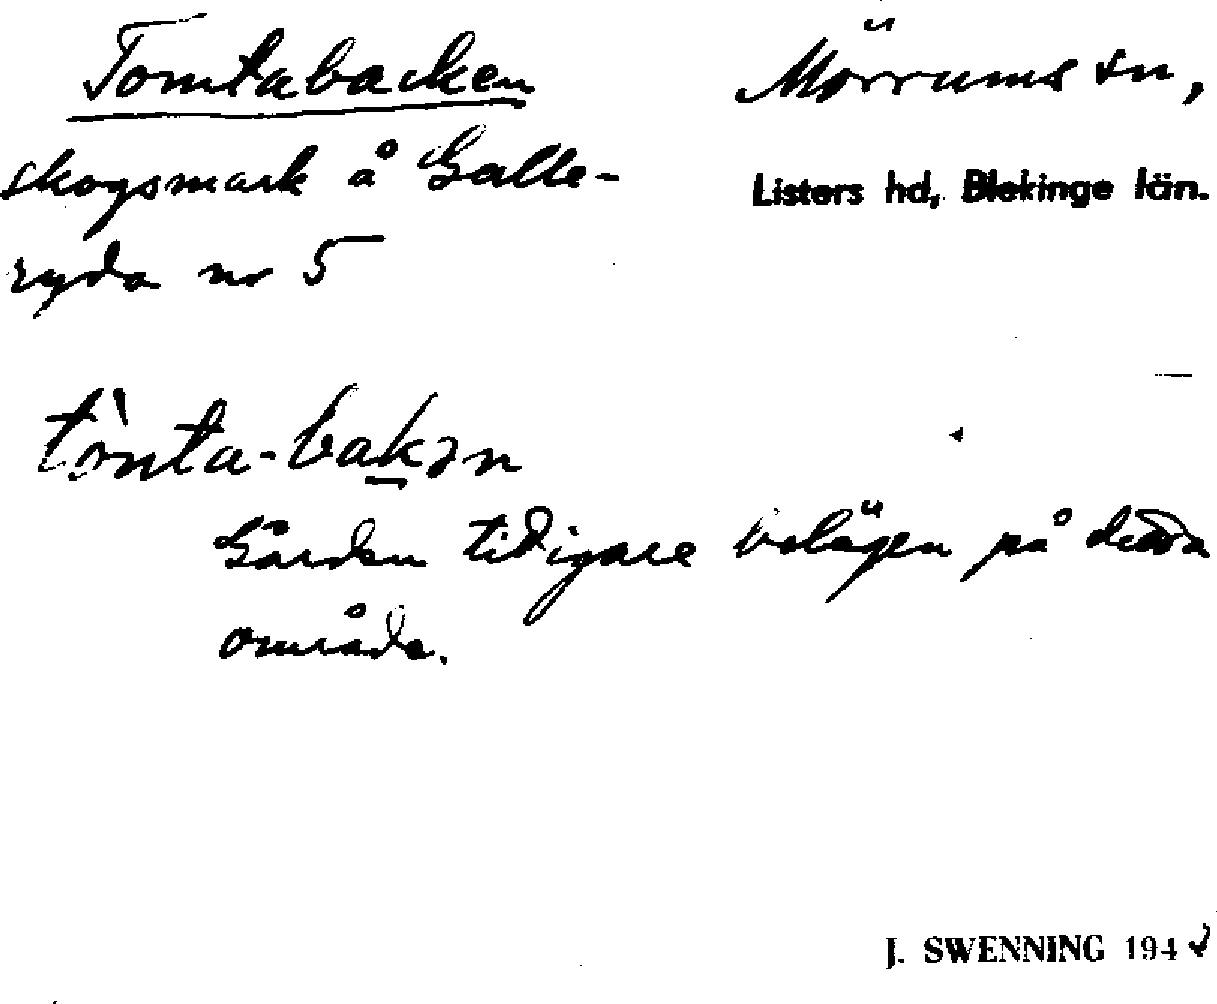 Tomtabacken
skogsmark å Galle-
ryda nr 5
Mörrums sn,
Listers hd, Blekinge län.
tònta-bakən
Gården tidigare belägen på detta
område.
J. SWENNING 1942